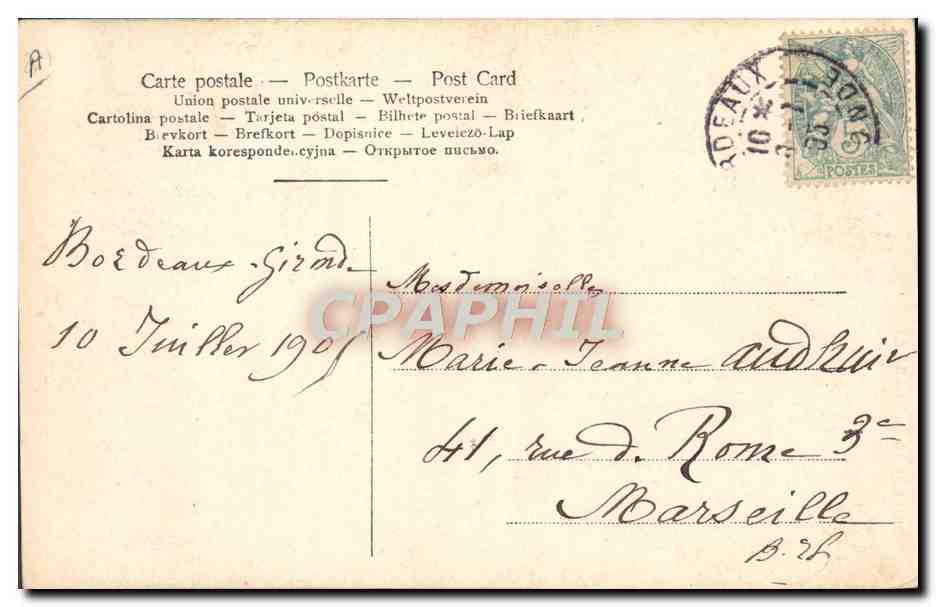 A
Carte postale — Postkarte — Post Card
Union postale universelle — Weltpostverein
Cartolina postale — Tarjeta póstal — Bilhete postal — Briefkaart
Brevkort — Brefkort — Dopisnice — Levelező-Lap
Karta korespondencyjna — Открытое письмо.
RDEAUX
GIRONDE
10
05
5
POSTES
Bordeaux-Gironde
10 Juillet 1905
Mesdemoiselles
Marie-Jeanne
41, rue d. Rome 3e
Marseille
B. Rh
CPAPHIL